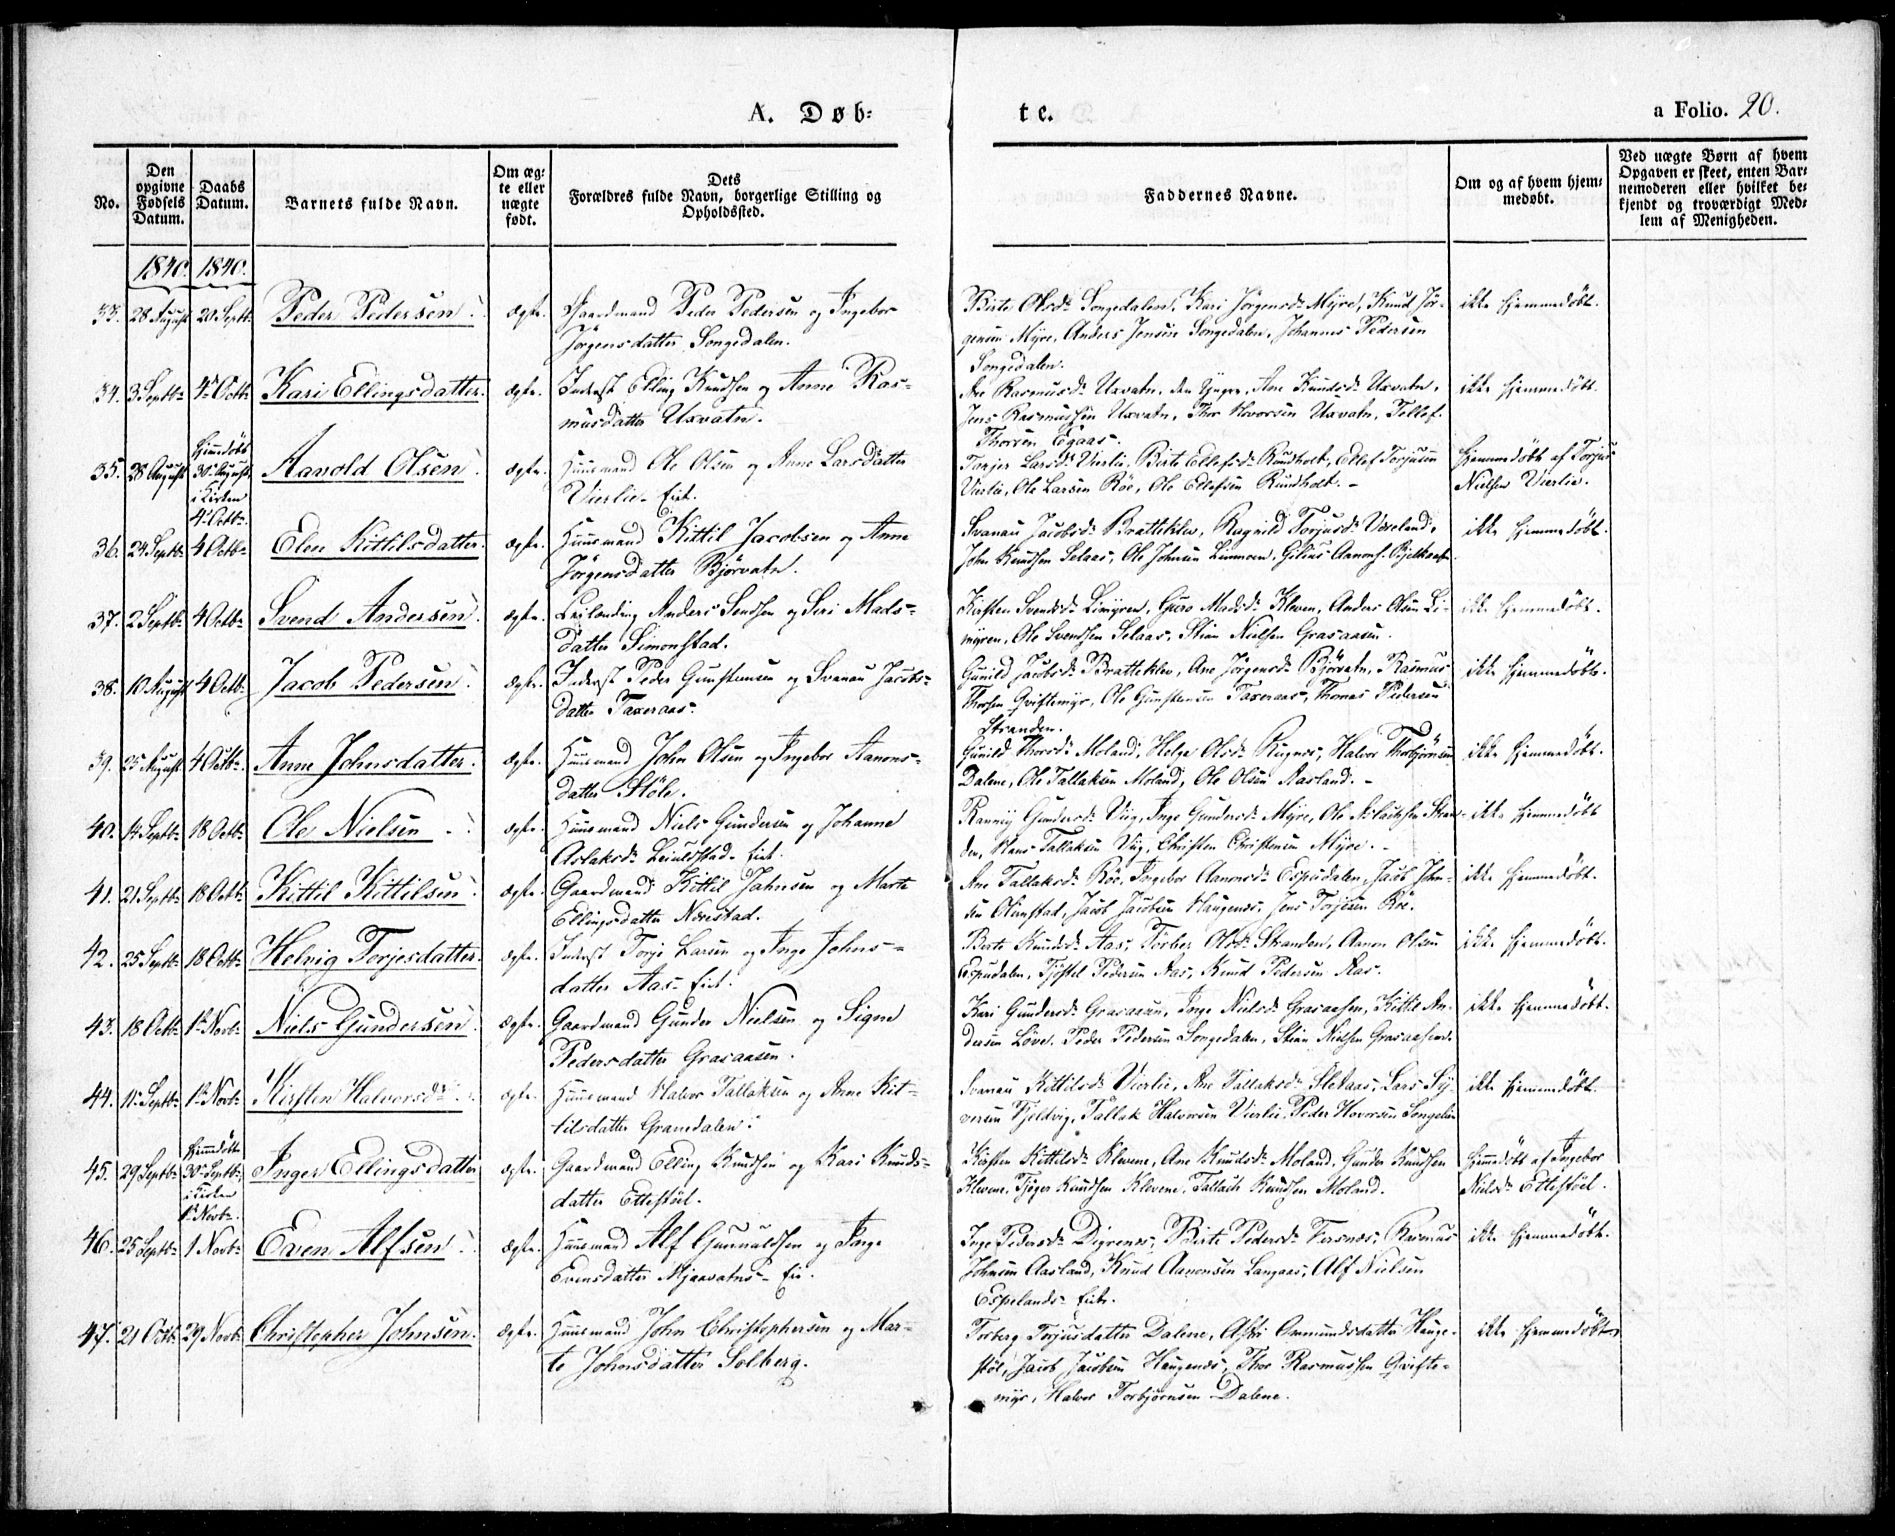 A. Døb-
te.
a Folio. 20.
No.
Den opgivne Fødsels Datum.
Daabs Datum.
Barnets fulde Navn.
Om ægte eller uægte født.
Dets Forældres fulde Navn, borgerlige Stilling og Opholdssted.
Faddernes Navne.
Om og af hvem hjemmedøbt.
Ved uægte Børn af hvem Opgaven er skeet, enten Barnemoderen eller hvilket bekjendt og troværdigt Medlem af Menigheden.
1840. 1840.
33. 28 August 20 Septb. Peder Pedersen ægte. Gaardmand Peder Pedersen og Ingebor
Jörgensdatter Songedalen.
Birte Olsd. Songedalen, Kari Jörgensd. Myre, Knud Jör-
gensen Myre, Anders Jensen Songedalen, Johannes Pedersen
Songedalen.
ikke hjemmedöbt.
34. 3 Septb. 4 Octb. Kari Ellingsdatter ægte. Inderst Elling Knudsen og Anne Ras-
musdatter Uxvatn.
Ane Rasmusd. Uxvatn, den Yngre, Ane Knudsd. Uxvatn,
Jens Rasmussen Uxvatn, Thor Hvorsen Uxvatn, Tellef
Thorsen Egaas.
ikke hjemmedöbt.
35. 28 August Hjemdöbt
30 August
i Kirken
4 Octb. Aavold Olsen ægte. Huusmand Ole Olsen og Anne Larsdatter
Vierlie-Eiet.
Larsd. Vierlie, Birte Ellefsd. Rundholt, Ellef Torjusen
Vierlie, Ole Larsen Röe, Ole Ellefsen Rundholt.
Hjemmedöbt af Torjus
Nielsen Vierlie.
36. 24 Septb. 4 Octb. Elen Kittilsdatter ægte. Huusmand Kittil Jacobsen og Anne
Jörgensdatter Björvatn.
Svanau Jacobsd. Bratteklev, Ragnild Torjusd. Veseland,
John Knudsen Selaas, Ole Johnsen Limoen,
ikke hjemmedöbt.
37. 2 Septb. 4 Octb. Svend Andersen ægte. Leilending Anders Sendsen og Siri Mads-
datter Simonstad.
Kirsten Svendsd. Limyren, Guro Madsd. Kleven, Anders Olsen Li-
myren, Ole Svendsen Selaas, Stian Nielsen Grasaasen.
ikke hjemmedöbt.
38. 10 August 4 Octb. Jacob Pedersen ægte. Inderst Peder Gunstensen og Svanau Jacobs-
datter Taxeraas.
Gunild Jacobsd. Bratteklev, Ane Jörgensd. Björvatn, Rasmus
Thorsen Qviftemyr, Ole Gunstensen Taxeraas, Thomas Pedersen
Stranden.
ikke hjemmedöbt.
39. 25 August 4 Octb. Anne Johnsdatter ægte. Huusmand John Olsen og Ingebor Aanons-
datter Höle.
Gunild Thorsd. Moland, Helge Olsd. Rugnes, Halvor Thorbjörnsen
Dalene, Ole Tallaksen Moland, Ole Olsen Aasland.
ikke hjemmedöbt.
40. 14 Septb. 18 Octb. Ole Nielsen ægte. Huusmand Niels Gundersen og Johanne
Aslaksd. Eiet.
Gundersd. Viig, Inge Gundersd. Myre, Ole Aslaksen Stran-
den, Hans Tallaksen Viig, Christen Christensen Myre.
ikke hjemmedöbt
41. 21 Septb. 18 Octb. Kittil Kittilsen ægte. Gaardmand Kittil Jahnsen og Marte
Ellingsdatter Nevestad.
Ane Tallaksd. Röe, Ingebor Aanonsd. Espedalen, Jacob John-
sen Jacob Jacobsen Haugenes, Jens Torjesen Röe.
ikke hjemmedöbt.
42. 25 Septb. 18 Octb. Helvig Torjesdatter ægte. Inderst Torje Larsen og Inge Johns-
datter Aas-Eiet.
Berte Knudsd. Aas, Torber Olsd. Stranden, Aanon Olsen
Espedalen, Tjöstel Pedersen Aas, Knud Pedersen Aas.
ikke hjemmedöbt.
43. 18 Octb. 1 Novb. Niels Gundersen ægte. Gaardmand Gunder Nielsen og Signe
Pedersdatter Grasaasen.
Kari Gundersd. Grasaasen, Inge Nielsd. Grasaasen, Kittil An-
dersen Löve, Peder Pedersen Songedalen, Stian Nielsen Grasaasen.
ikke hjemmedöbt.
44. 11 Septb. 1 Novb. Kirsten Halvorsd. ægte. Huusmand Halvor Tallaksen og Anne Kit-
tilsdatter Granedalen.
Svanau Kittilsd. Vierlie, Ane Tallaksd. Sletaas, Lars Sy-
versen Fjeldvig, Tallak Halvorsen Vierlie, Peder Hvorsen Songedalen
ikke hjemmedöbt.
45. 29 Septb. Hjemdöbt
30 Septb.
i Kirken
1 Novb. Inger Ellingsdatter ægte. Gaardmand Elling Knudsen og Kari Knuds-
datter Ettestöel.
Kirsten Kittilsd. Klevene, Ane Knudsd. Moland, Gunder Knudsen
Klevene, Tjöger Knudsen Klevene, Tallak Knudsen Moland.
Hjemmedöbt af Ingebor
Nielsd. Ettestöel.
46. 25 Septb. 1 Novb. Even Alfsen ægte. Huusmand Alf Gunnuldsen og Inge
Evensdatter Mjaavatns-Eie.
Inge Pedersd. Digrenes, Birte Pedersd. Versnes, Rasmus
Johnsen Aasland, Knud Aanonsen Langaas, Alf Nielsen
Espelands-Eiet.
ikke hjemmedöbt.
47. 21 Octb. 29 Novb. Christopher Johnsen ægte. Huusmand John Christophersen og Mar-
te Johnsdatter Solberg.
Torberg Torjusdatter Dalene, Aslri Omundsdatter Hauge-
stöl, Jacob Jacobsen Haugenes, Thor Rasmussen Qvifte-
myr, Halvor Torbjörnsen Dalene.
ikke hjemmedöbt.